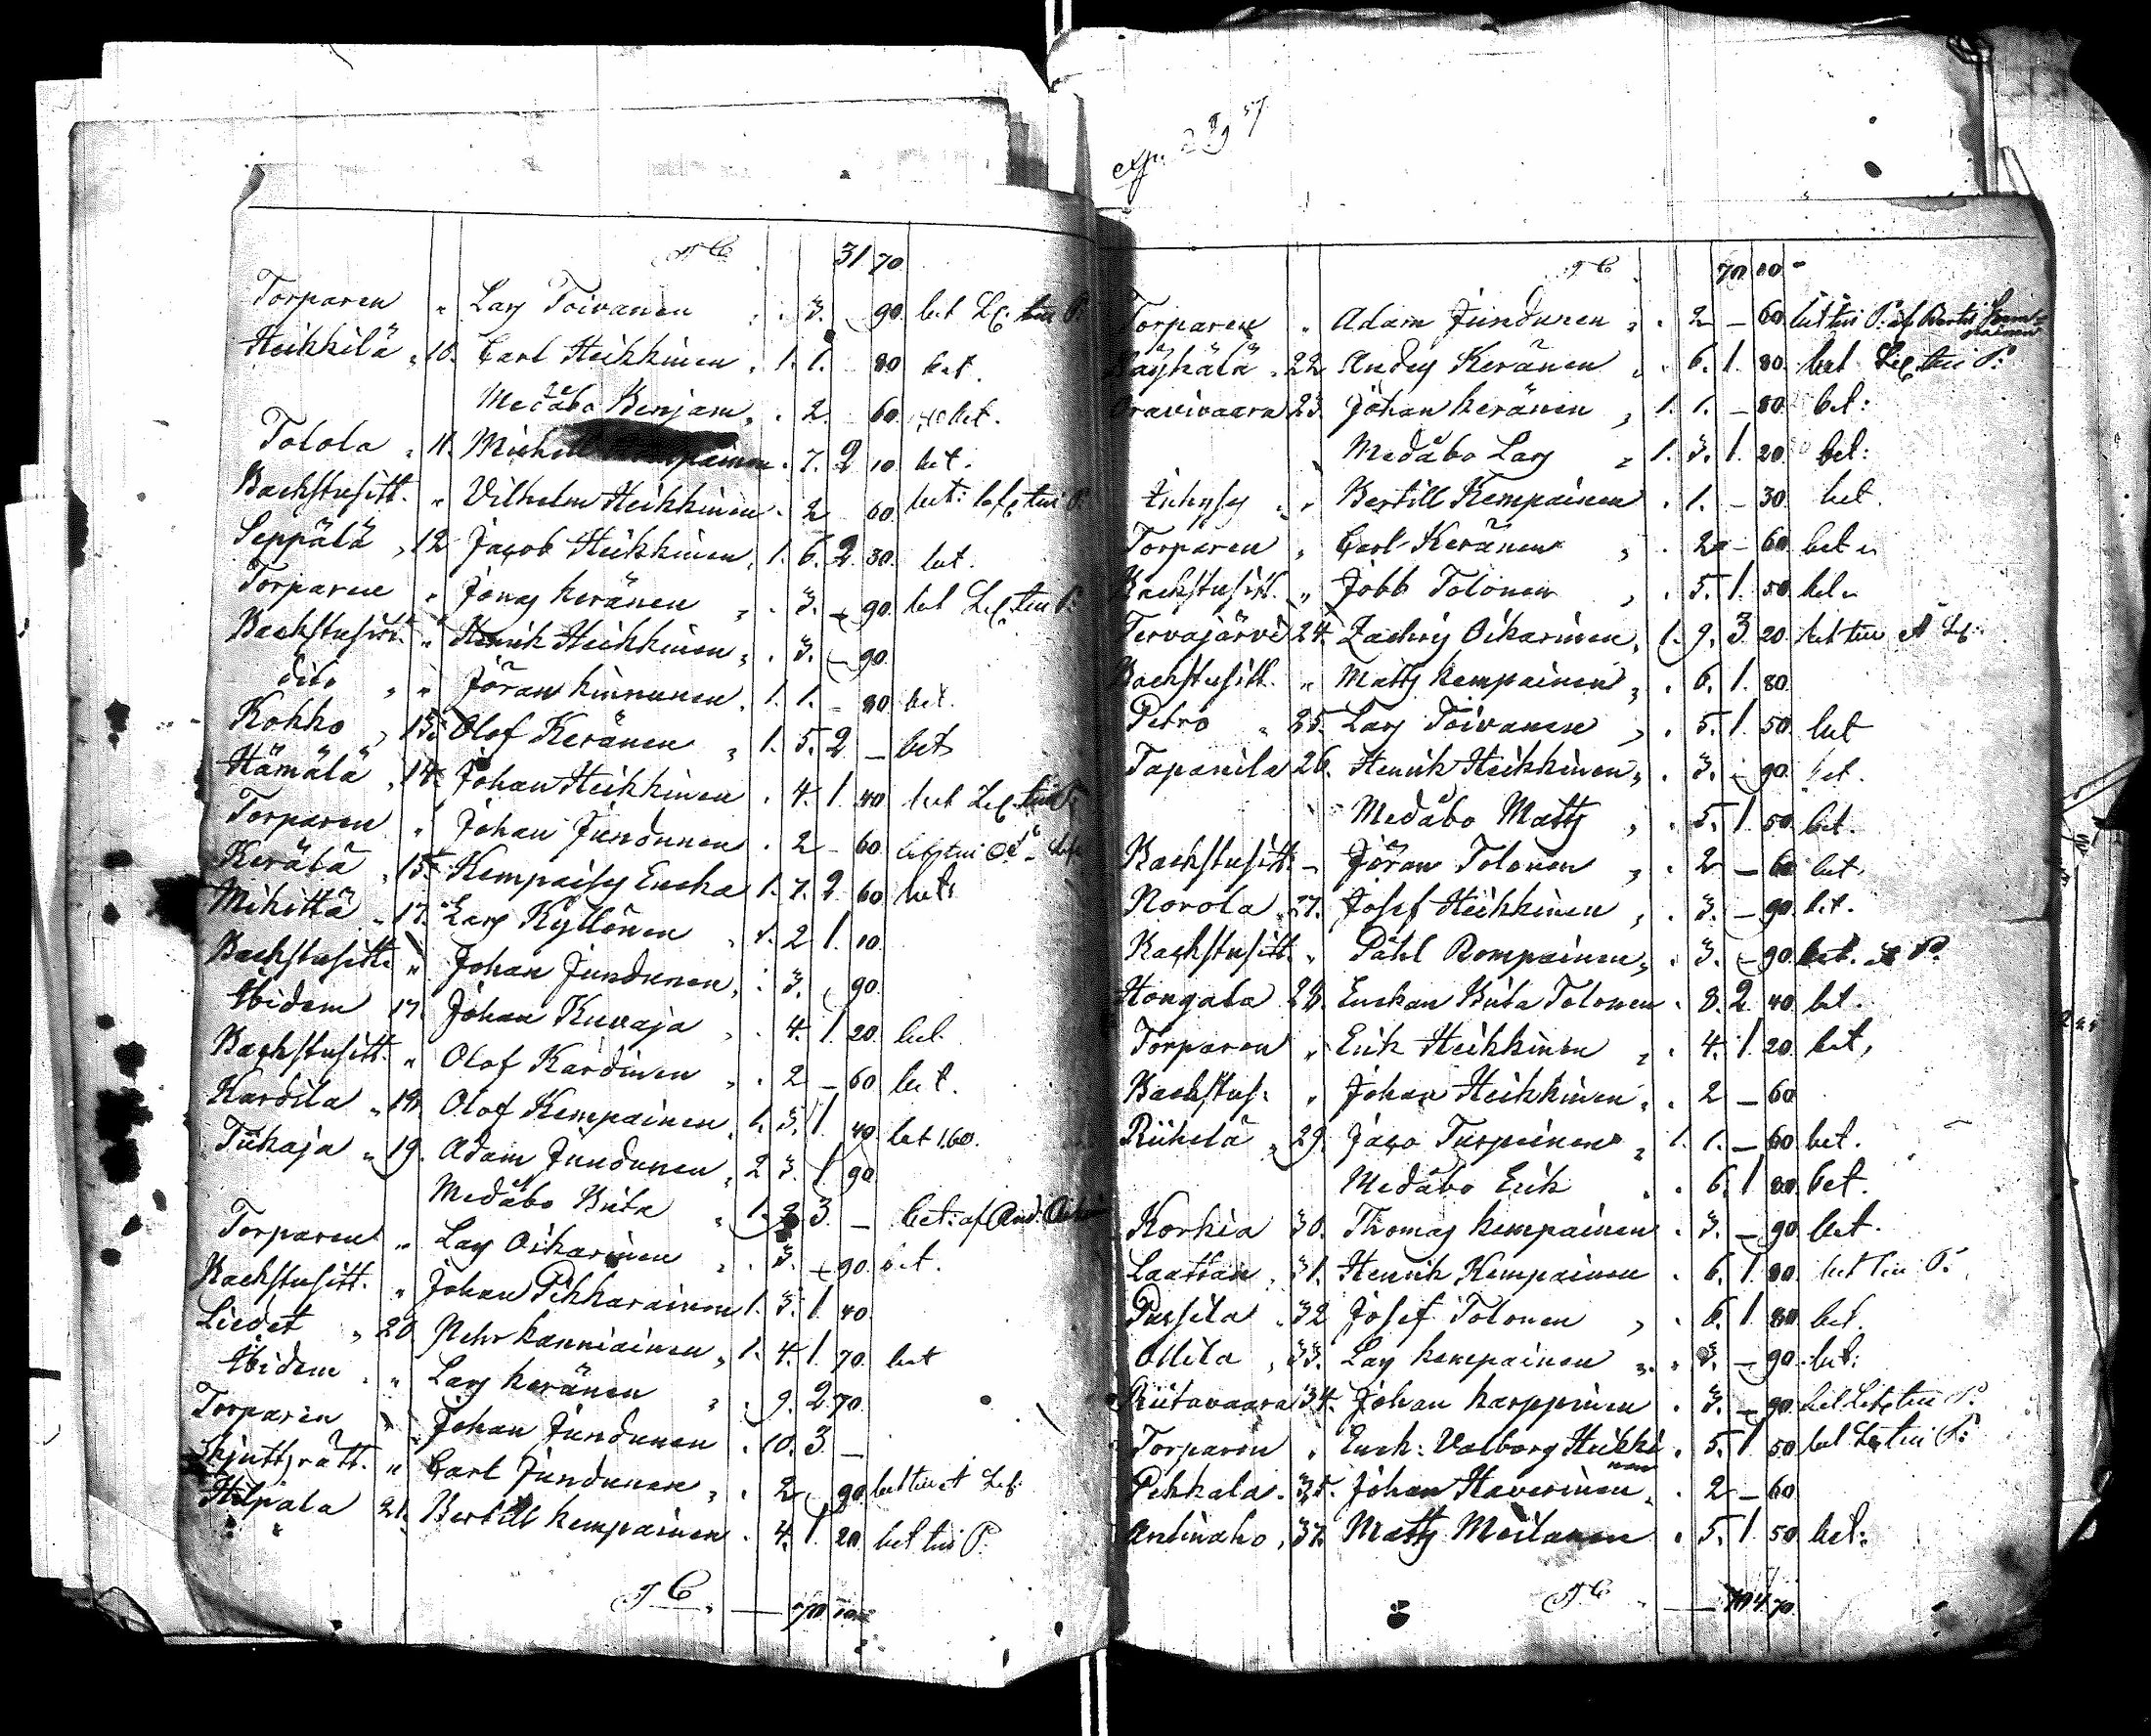 T C 31 70
Torparen " Lars Toivanen " . 3. – 90. bet
Heikkilä " 10. Carl Heikkinen . 1. 1. – 80 bet.
Medåbo Benjam. . 2 – 60. bet.
Tolola " 11. Michell . 7. 2 10 bet.
Backstusitt. " Vilhelm Heikkinen . 2 60 bet:
Seppälä " 12 Jacob Heikkinen . 1. 6. 2. 30. bet.
Torparen " Jonas Keränen " . 3. – 90. bet
Backstusitt. " Henrik Heikkinen " . 3. – 90.
dito " " Jöran Kinnunen . 1. 1. – 80. bet.
Kokko " 13. Olof Keränen " 1. 5. 2 – bet
Hämälä " 14. Johan Heikkinen . 4. 1. 40 bet
Torparen " Johan Jundunen . 2 – 60
Kerälä " 15. Kempaisen Encka 1. 7. 2 60 bet:
Mikittä " 17. Lars Kyllönen " 1. 2 1. 10.
Backstusitt. " Johan Jundunen . . 3. – 90.
Ibidem 17. Johan Kuvaja " . 4. 1. 20. bet.
Backstusitt. " Olof Kardinen " . 2 – 60 bet.
Kardila " 18. Olof Kempainen . 1. 3. 1. 40 bet 1,60.
Tiikaja " 19. Adam Jundunen " 2 3. 1. 90
Medåbo Brita " 1. 3. – bet: af And.
Torparen " Lars Oikarinen " . 3. – 90. bet.
Backstusitt. " Johan Pikkarainen 1. 3. 1. 40.
Liedet " 20 Pehr Kanniainen " 1. 4. 1. 70. bet
Ibidem " Lars Keränen " . 9. 2. 70.
Torparen " Johan Jundunen . 10. 3. –
Skjuttsrätt. " Carl Jundunen " . 2 90.
Hilpala 21. Bertill Kempainen . 4. 1. 20. bet tui P.
T C. — 70 10
T C. 70 10 –
Torparen " Adam Jundunen " . 2 – 60
22 Anders Keränen " . 6. 1. 80. bet
Oravivaara 23. Johan Keränen " 1. 1. – 80. bet:
Medåbo Lars " 1. 3. 1. 20. bet:
" Bertill Kempainen . 1. – 30. bet.
Torparen " Carl Keränen " . 2 – 60 bet
Backstusitt. " Jobb Tolonen " . 5. 1. 50 bet
Tervajärvi 24. Zachris Oikarinen . 1. 9. 3. 20.
Backstusitt. " Matts Kempainen " . 6. 1. 80.
Petro " 25. Lars Toivanen " . 5. 1. 50. bet
Tapanila 26. Henrik Heikkinen " . 3. – 90. bet.
Medåbo Matts " . 5. 1. 50. bet.
Backstusitt. – Jöran Tolonen " . 2 – 60 bet.
Norola " 27. Josef Heikkinen " . 3. – 90. bet.
Backstusitt. " Påhl Rompainen " . 3. – 90. bet.
Hongala 28. Enckan Brita Tolonen . 8. 2. 40. bet.
Torparen " Erik Heikkinen " . 4. 1. 20. bet.
Backstus: " Johan Heikkinen " . 2 – 60
Riihelä " 29. Jaco Turpeinen " 1. 1. – 60 bet.
Medåbo Erik . . 6. 1 80. bet.
Korkia 30. Thomas Kempainen . 3. – 90. bet.
31. Henrik Kempainen . 6. 1. 80. bet tui P.
Pussila " 32 Josef Tolonen " . 6. 1. 80. bet.
Ollila " 33. Lars Kempainen " . 3. – 90. bet:
Riitavaara 34. Johan Karppinen . 3. – 90.
Torparen " Enck: Valborg Heikki . 5. 1. 50
nen
Pekkala . 35. Johan Haverinen . . 2 – 60
Antinaho " 37. Matts Moilanen . 5. 1. 50. bet:
T C. — 104 70.